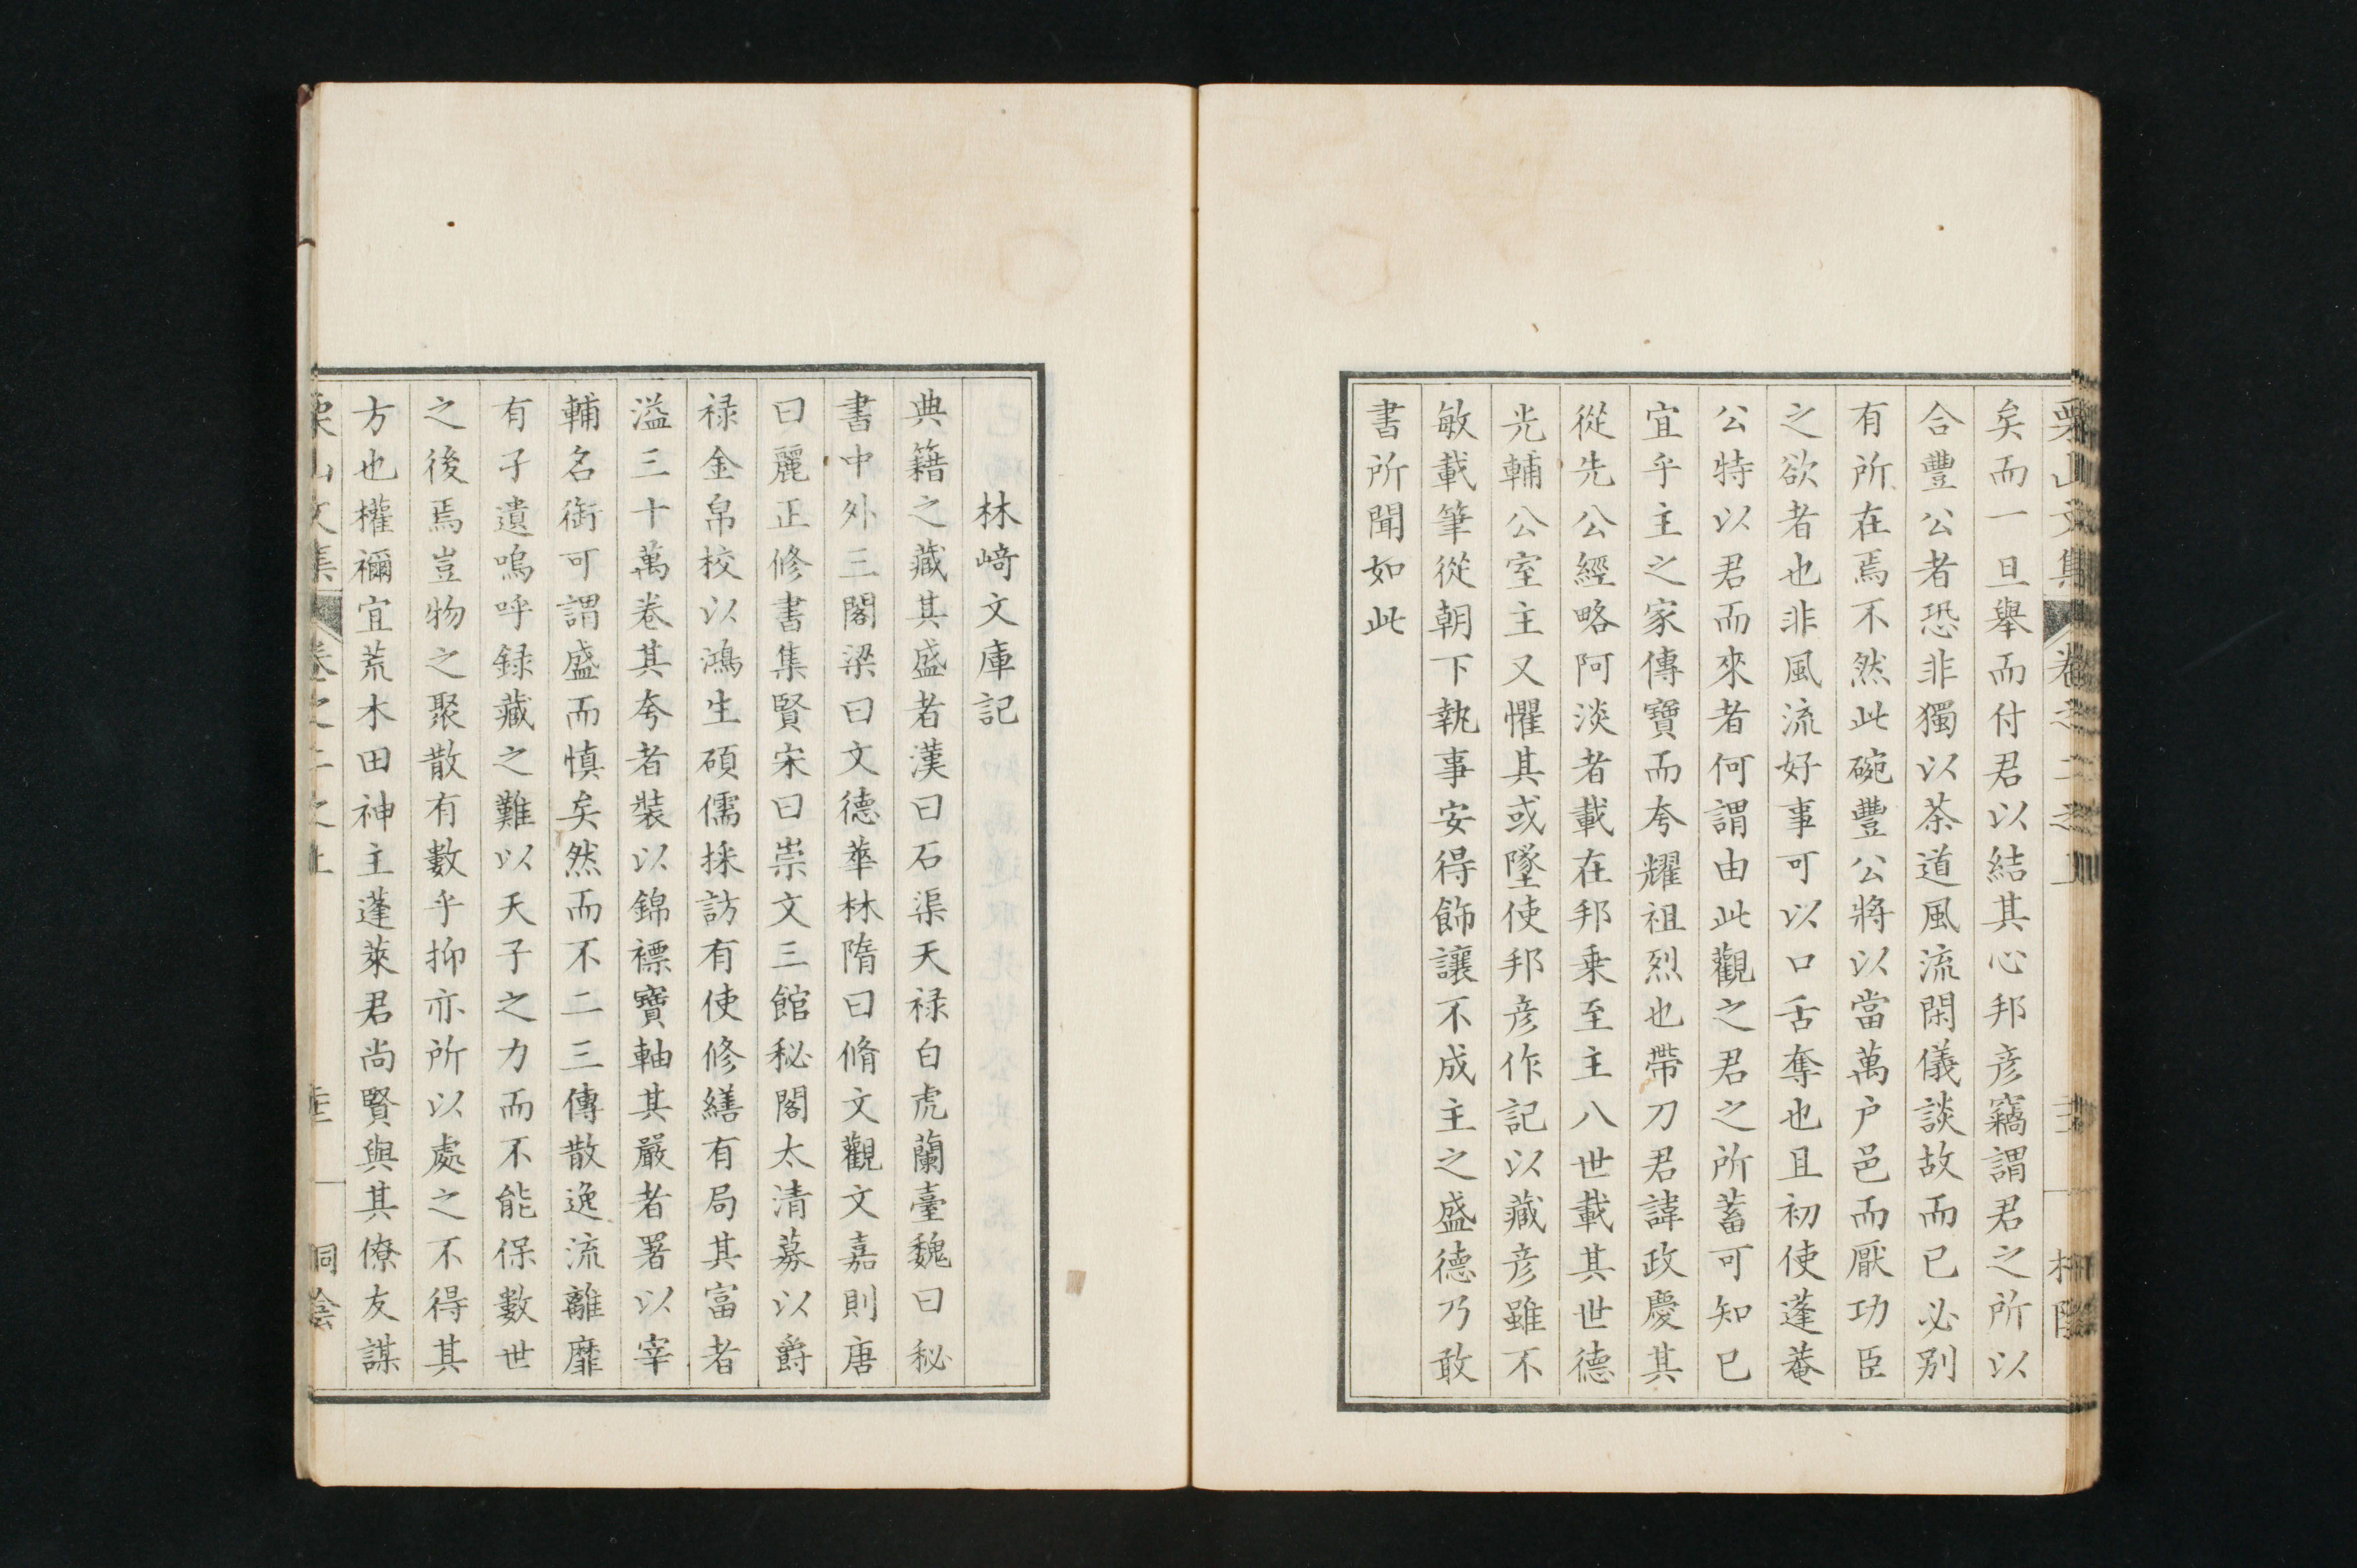 矣而一旦舉而付君以結其心邦彦竊謂君之所以
合豐公者恐非獨以茶道風流閑儀談故而已必別
有所在焉不然此碗豐公將以當萬户邑而厭功臣
之欲者也非風流好事可以口舌奪也且初使蓬菴
公特以君而來者何謂由此觀之君之所蓄可知已
宜乎主之家傳寶而夸耀祖烈也帶刀君諱政慶其
從先公經略阿淡者載在邦乗至主八世載其世德
光輔公室主又懼其或墜使邦彦作記以藏彦雖不
敏載筆從朝下執事安得飾讓不成主之盛德乃敢
書所聞如此
林﨑文庫記
典籍之藏其盛者漢曰石渠天禄白虎蘭臺魏曰秘
書中外三閣梁曰文德華林隋曰脩文觀文嘉則唐
曰麗正修書集賢宋曰崇文三館秘閣太清募以爵
禄金帛校以鴻生碩儒採訪有使修繕有局其富者
溢三十萬卷其夸者裝以錦褾寶軸其嚴者署以宰
輔名銜可謂盛而慎矣然而不二三傳散逸流離靡
有孑遺嗚呼録藏之難以天子之力而不能保數世
之後焉豈物之聚散有數乎抑亦所以處之不得其
方也權禰宜荒木田神主蓬萊君尚賢與其僚友謀
栗山文集 卷之二之上